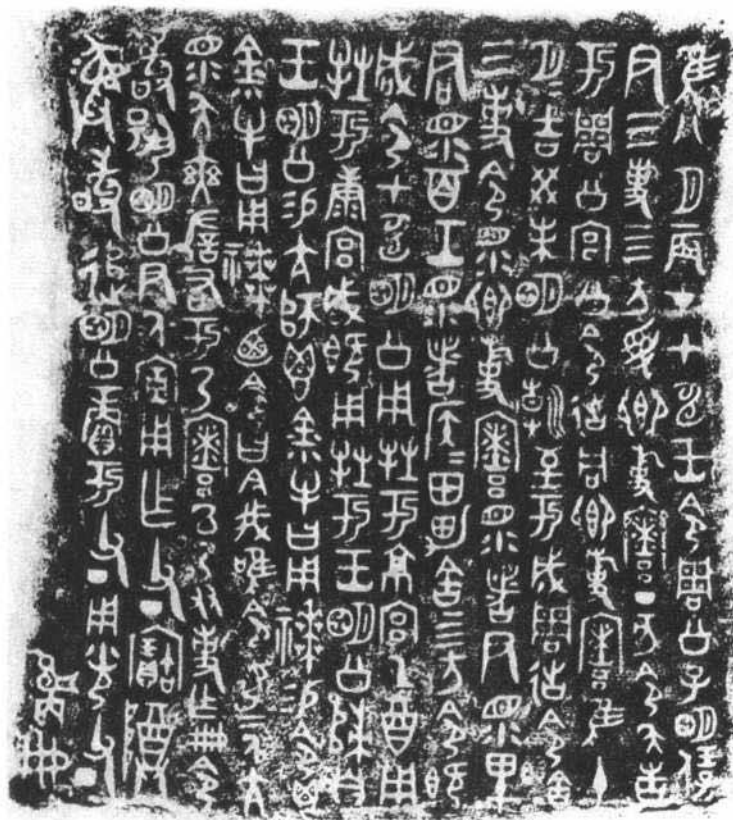 隹八月辰才甲申王令周公子明保
尹三事四方受卿事寮丁亥令夨告
于周公宮公令𢓊同卿事寮隹十
月月吉癸未明公朝至于成周𢓊令舍
三事令眔卿事寮眔者尹眔里
君眔百工眔者侯侯田男舍四方令既
咸令甲申明公用牲于京宮乙酉用
牲于康宮咸既用牲于王明公歸自
王明公易亢師鬯金小牛曰用禱易令鬯
金小牛曰用禱迺令曰今我唯令女二人亢
眔夨奭左右于乃寮以乃友事乍冊令
敢揚明公尹氒宁用乍父丁寶尊彝
敢追明公賞于父丁用光父丁
冊